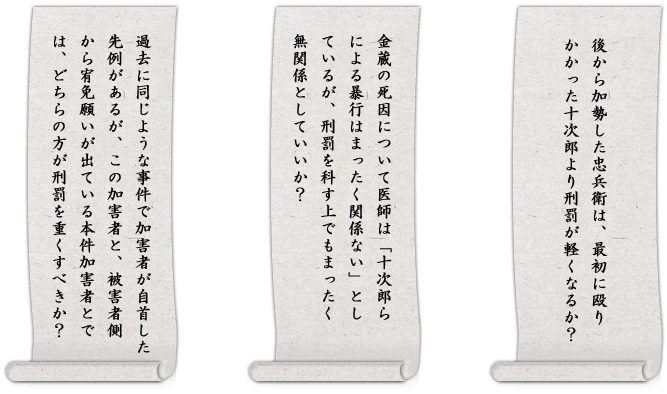 後から加勢した忠兵衛は、最初に殴り
かかった十次郎より刑罰が軽くなるか？
金蔵の死因について医師は「十次郎ら
による暴行はまったく関係ない」とし
ているが、刑罰を科す上でもまったく
無関係としていいか？
過去に同じような事件で加害者が自首した
先例があるが、この加害者と、被害者側
から宥免願いが出ている本件加害者とで
は、どちらの方が刑罰を重くすべきか？